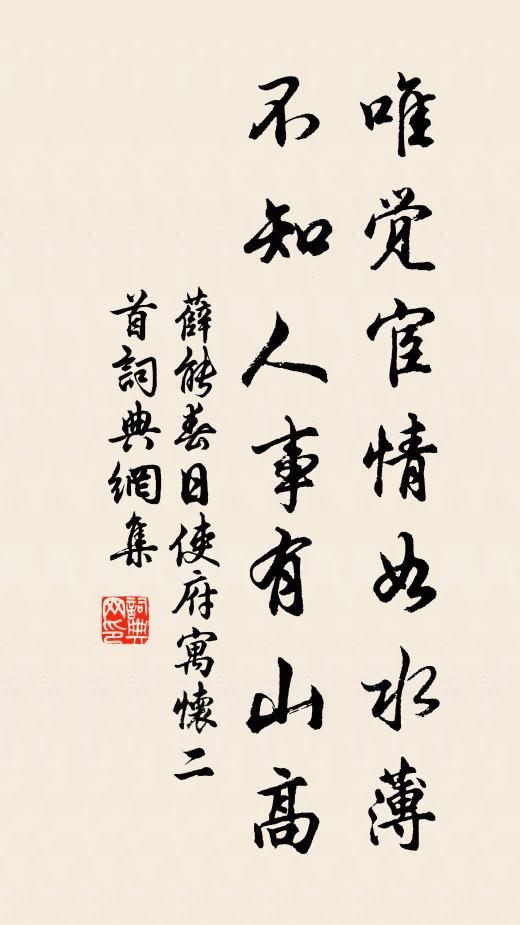 唯覚宦情如水薄
不知人事有山高
薛能春日使府寓懷二
首詞典網集
詞典
网印